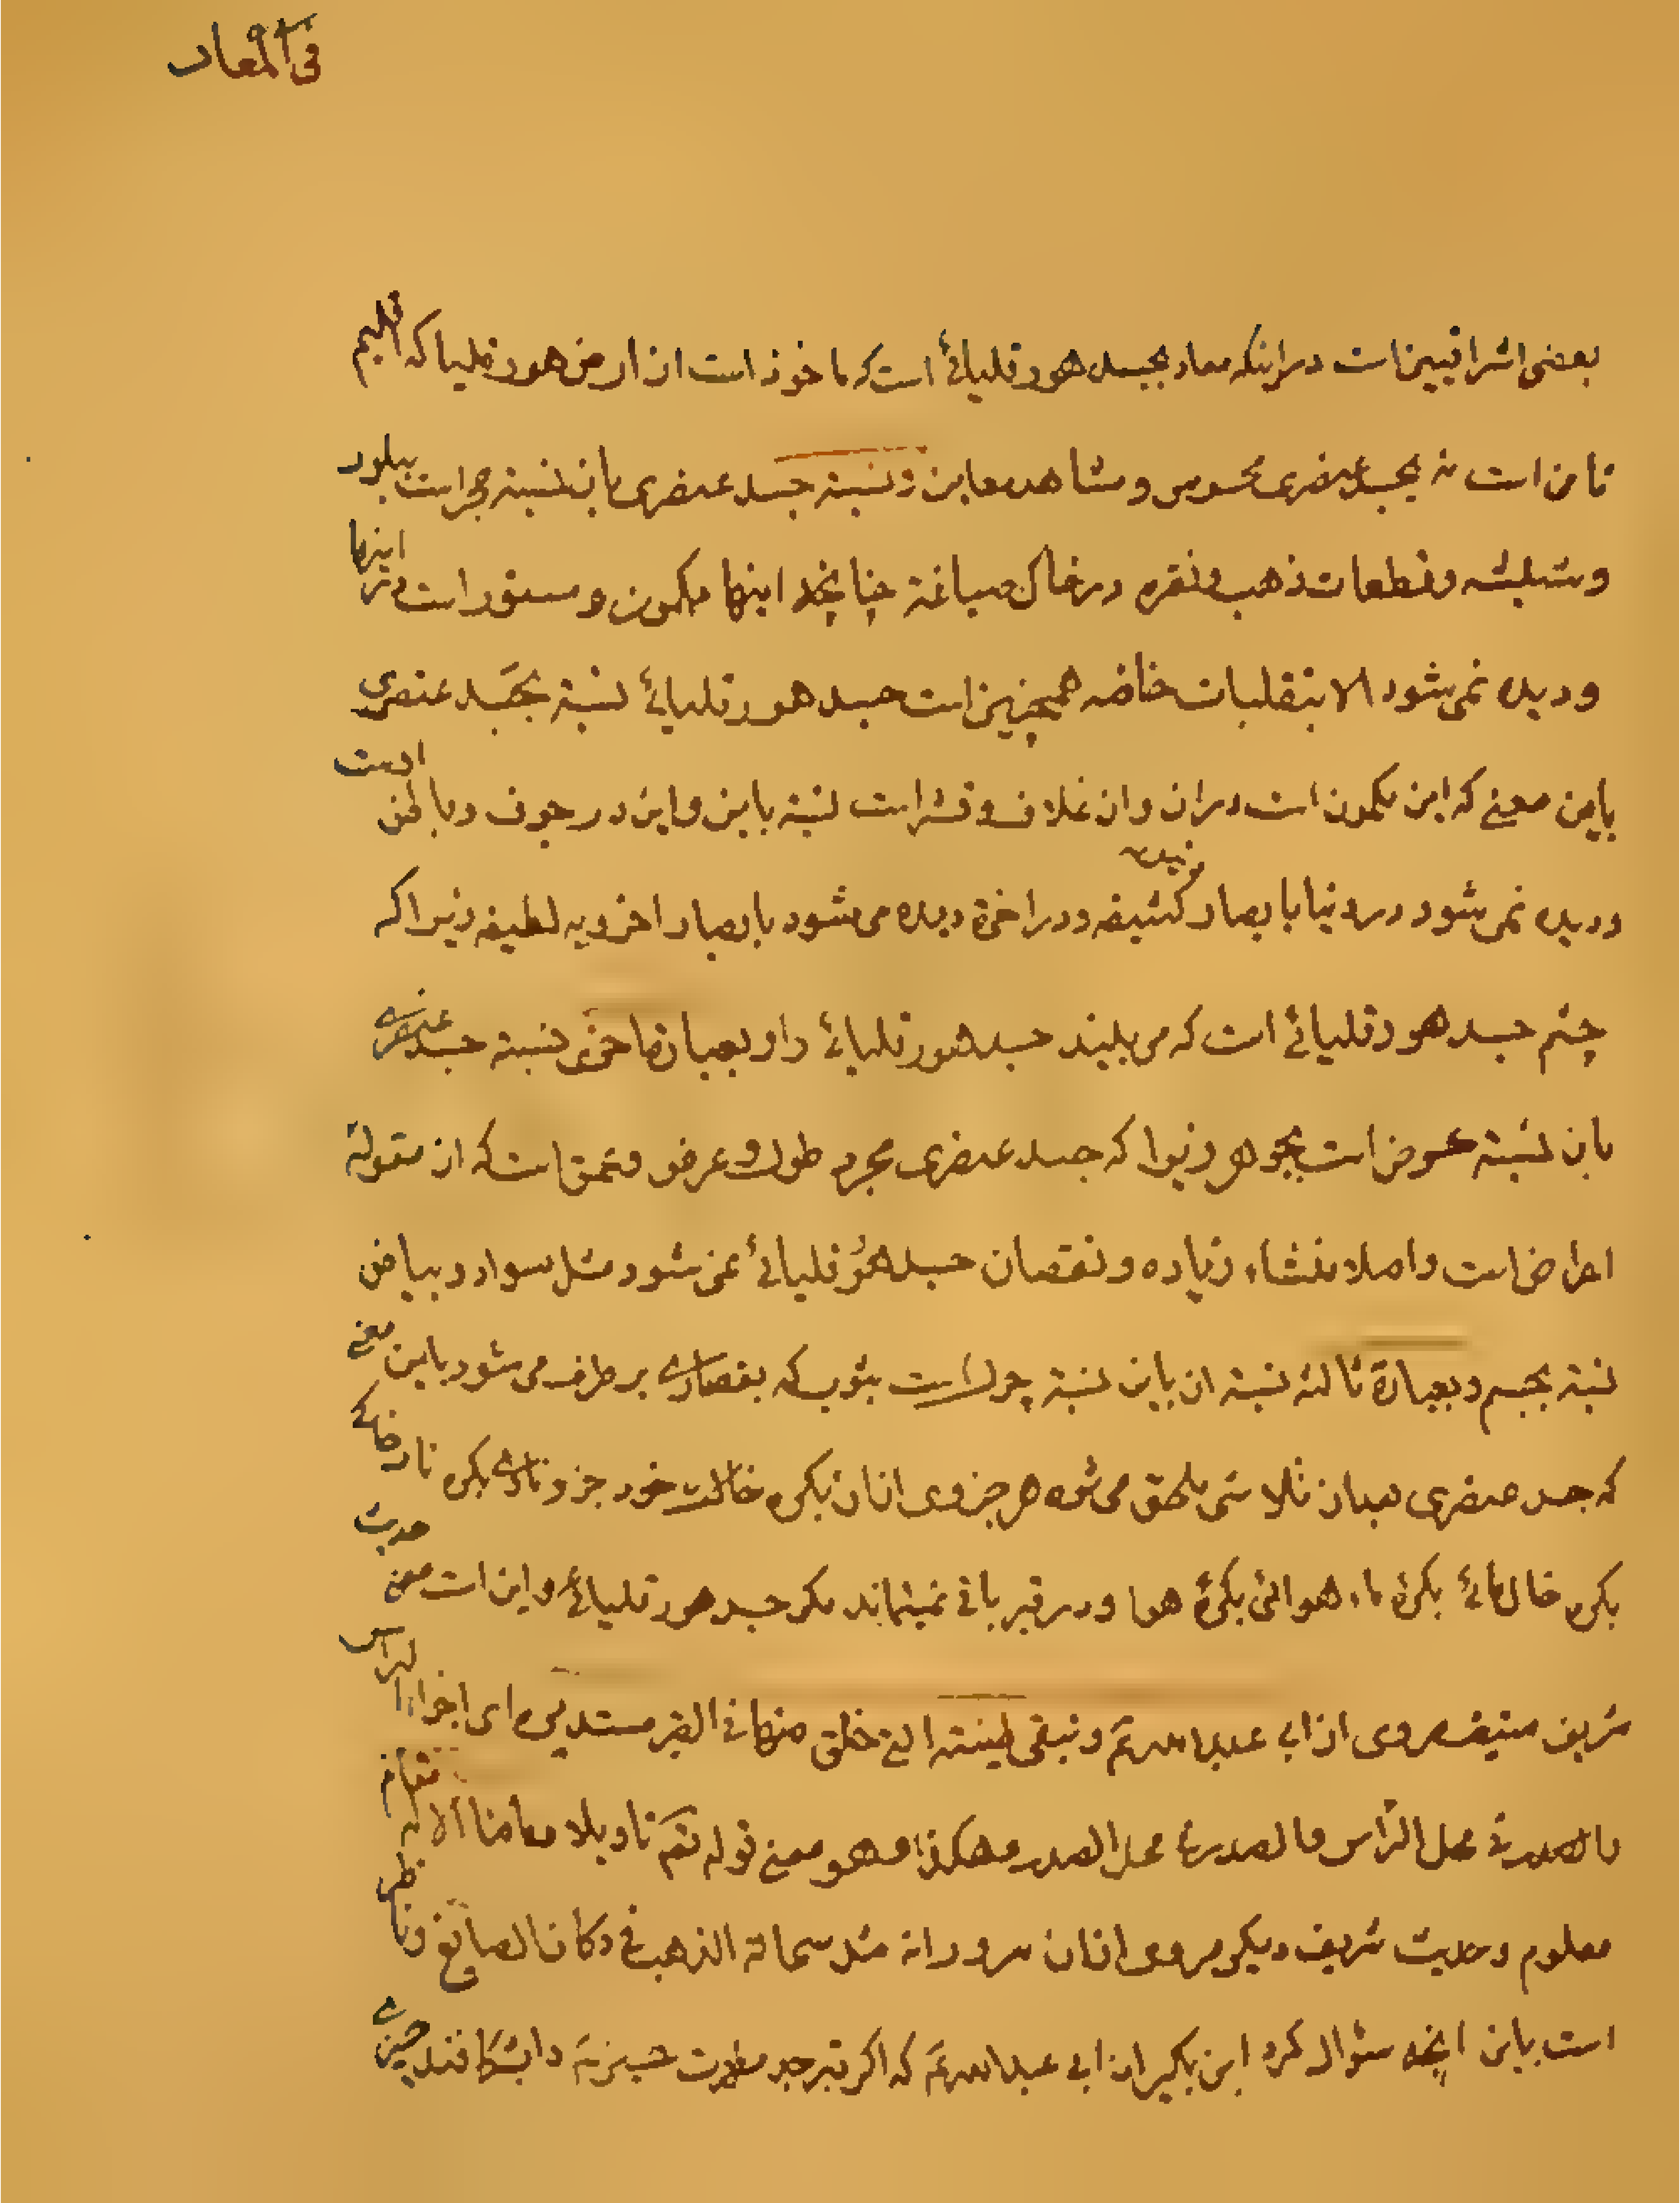 فی المعاد
بعضی اشراقیین است در اینکه معاد بجسد هورقلیائی است که ماخوذ است از ارض هورقلیا که اقلیم
ثامن است نه بجسد عنصری محسوس و مشاهد معاین و نسبة جسد عنصری بان نسبته حجر است ببلور
و شیشه و قطعات ذهب و نقره در خاک صیاغة چنانچه اینها مکمون و مستور است در اینها
و دیده نمی‌شود الا بتقلبات خاصه همچنین است جسد هورقلیائی نسبة بجسد عنصری
باین معنی که این مکمون است در ان و ان غلاف و قشر است نسبة باین و این در جوف و باطن اوست
و دیده نمی‌شود در دنیا بابصار دنیویه کثیفه و در اخرة دیده می‌شود بابصار اخرویه لطیفه زیرا که
چشم جسد هورقلیائی است که می‌بیند جسد هورقلیائی را و بعبارة اخری نسبة جسد عنصری
بان نسبة عرض است بجوهر زیرا که جسد عنصری مجرد طول و عرض و عمق است که از مقوله
اعراض است و اصلا منشاء زیاده و نقصان جسد هورقلیائی نمی‌شود مثل سواد و بیاض
نسبة بجسم و بعبارة ثالثه نسبة ان باین نسبة چرک است بثوب که بقصاری بر طرف می‌شود باین معنی
که جسد عنصری متلاشی ملحق می‌شود هر جزوی از ان بکره خاکست خود جزو ناری بکره نار خاکی
بکره خاک مائی بکره ماء هوائی بکره هوا و در قبر باقی نمیماند مگر جسد هورقلیائی و این است معنی حدیث
شریف مروی از ابی عبدالله ع و تبقی طینته التی خلق منها فی القبر مستدیرة ای اجزاء الراس
فی محل الراس فالصدر فی محل الصدر و هکذا و هو معنی قوله تعم تاویلا و ما منا الا له مقام
معلوم و حدیث شریف دیگر مروی از ان سرور انه مثل سحالة الذهب فی دکان الصایغ و ناظر
است باین انچه سؤال کرد ابن بکیر از ابی عبدالله ع که اگر قبر جد مطهرت حسین ع را بشکافند چیزی